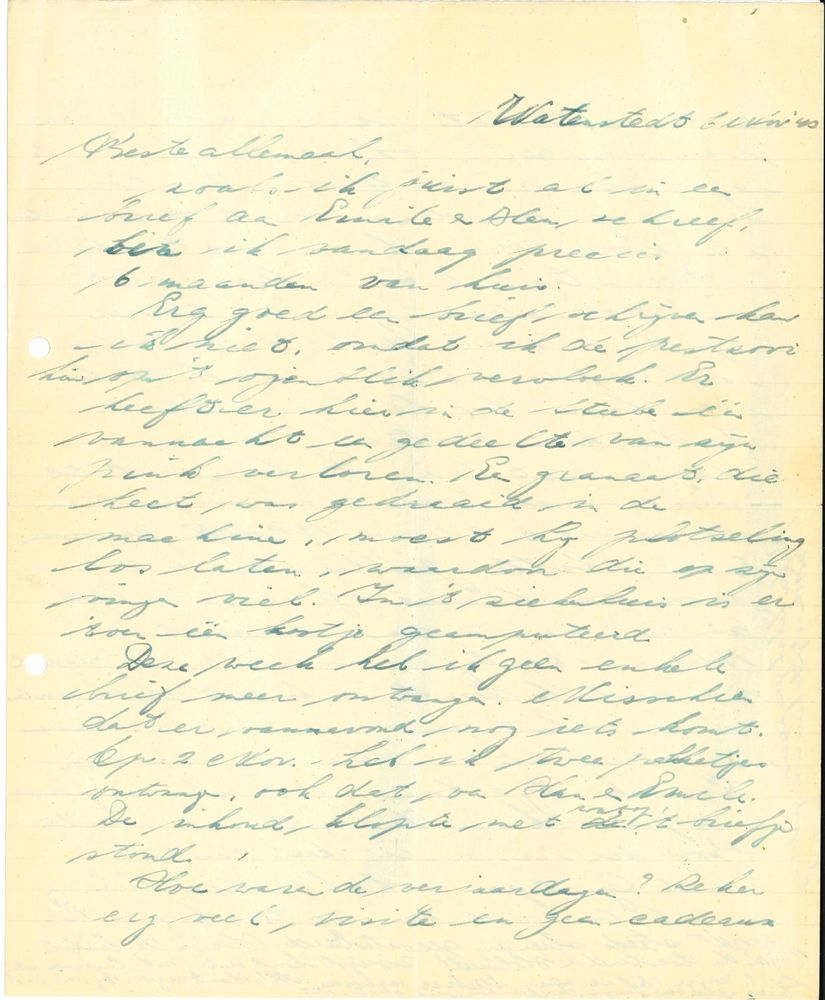 Watenstedt 6 Nov '43
Beste allemaal,
zoals ik juist al in een
brief aan Emile en Han, schreef,
ben ik vandaag precies
6 maanden van huis.
Erg goed een brief schrijven kan
ik niet, omdat ik de
op 't ogenblik. Er
heeft er hier in de Stube één
vannacht een gedeelte van zijn
pink verloren. Een granaat, die
heet was gedraaid in de
machine, moest hij plotseling
los laten, waardoor die op zijn
vinger viel. In 't ziekenhuis is er
toen één kootje geamputeerd.
Deze week heb ik geen enkele
brief meer ontvangen. Misschien
dat er vannavond nog iets komt.
Op 2 Nov. heb ik twee pakketjes
ontvangen, ook dat van Han en Emile.
De inhoud, klopte met 't briefje
stond.
Hoe waren de verjaardagen? Zeker
erg veel, visite en geen cadeaux